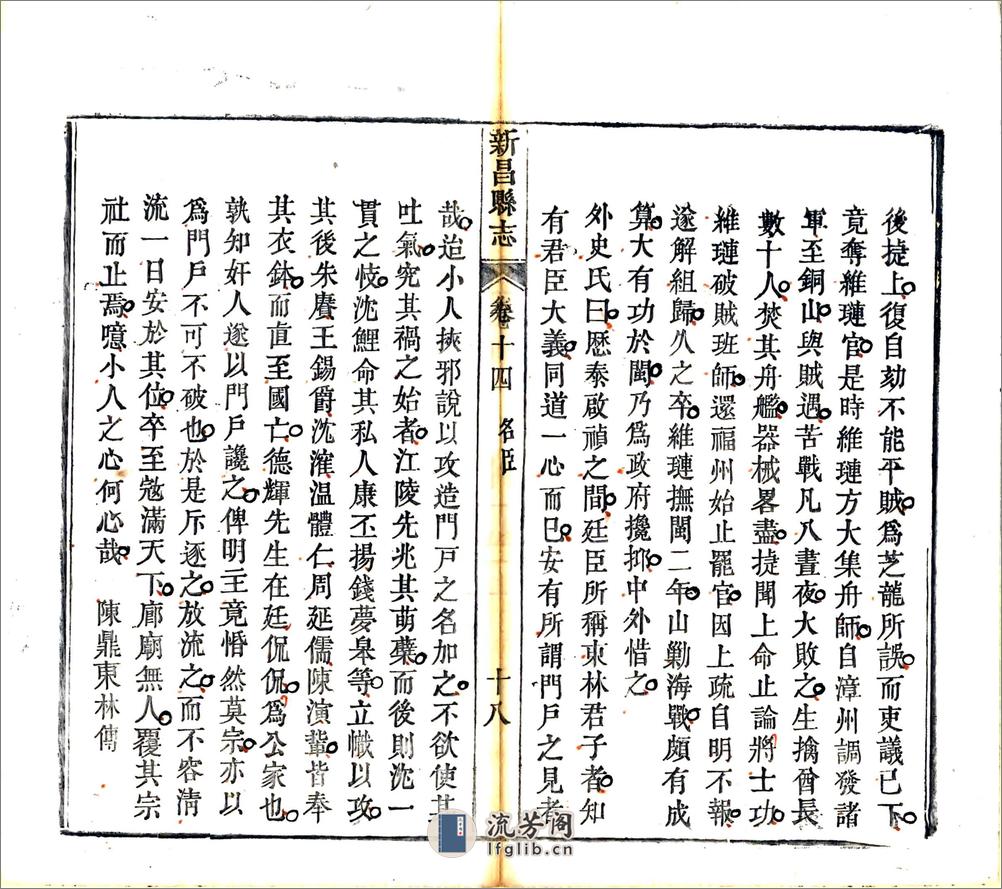 後捷上復自劾不能平賊爲芝龍所誤而吏議已下
竟奪維璉官是時維璉方大集舟師自漳州調發諸
軍至銅山與賊遇苦戰凡八晝夜大敗之生擒酋長
數十人焚其舟艦器械畧盡捷聞上命止論將士功
維璉破賊班師還福州始止罷官因上疏自明不報
遂解組歸久之卒維璉撫閩二年山勦海戰頗有成
算大有功於閩乃爲政府攙抑中外惜之
外史氏曰厯泰啟禎之間廷臣所稱東林君子者知
有君臣大義同道一心而已安有所謂門戶之見者
新昌縣志
卷十四 名臣
十八
哉迨小人挾邪說以攻造門戶之名加之不欲使其
吐氣究其禍之始者江陵先兆其萌蘗而後則沈一
貫之忮沈鯉命其私人康丕揚錢夢皋等立幟以攻
其後朱賡王錫爵沈㴶溫體仁周延儒陳演輩皆奉
其衣鉢而直至國亡德輝先生在廷侃侃爲公家也
孰知奸人遂以門戶讒之俾明主竟惛然莫宗亦以
爲門戶不可不破也於是斥逐之放流之而不容淸
流一日安於其位卒至寇滿天下廊廟無人覆其宗
社而止焉噫小人之心何心哉 陳鼎東林傳
流芳閣
lfglib.cn